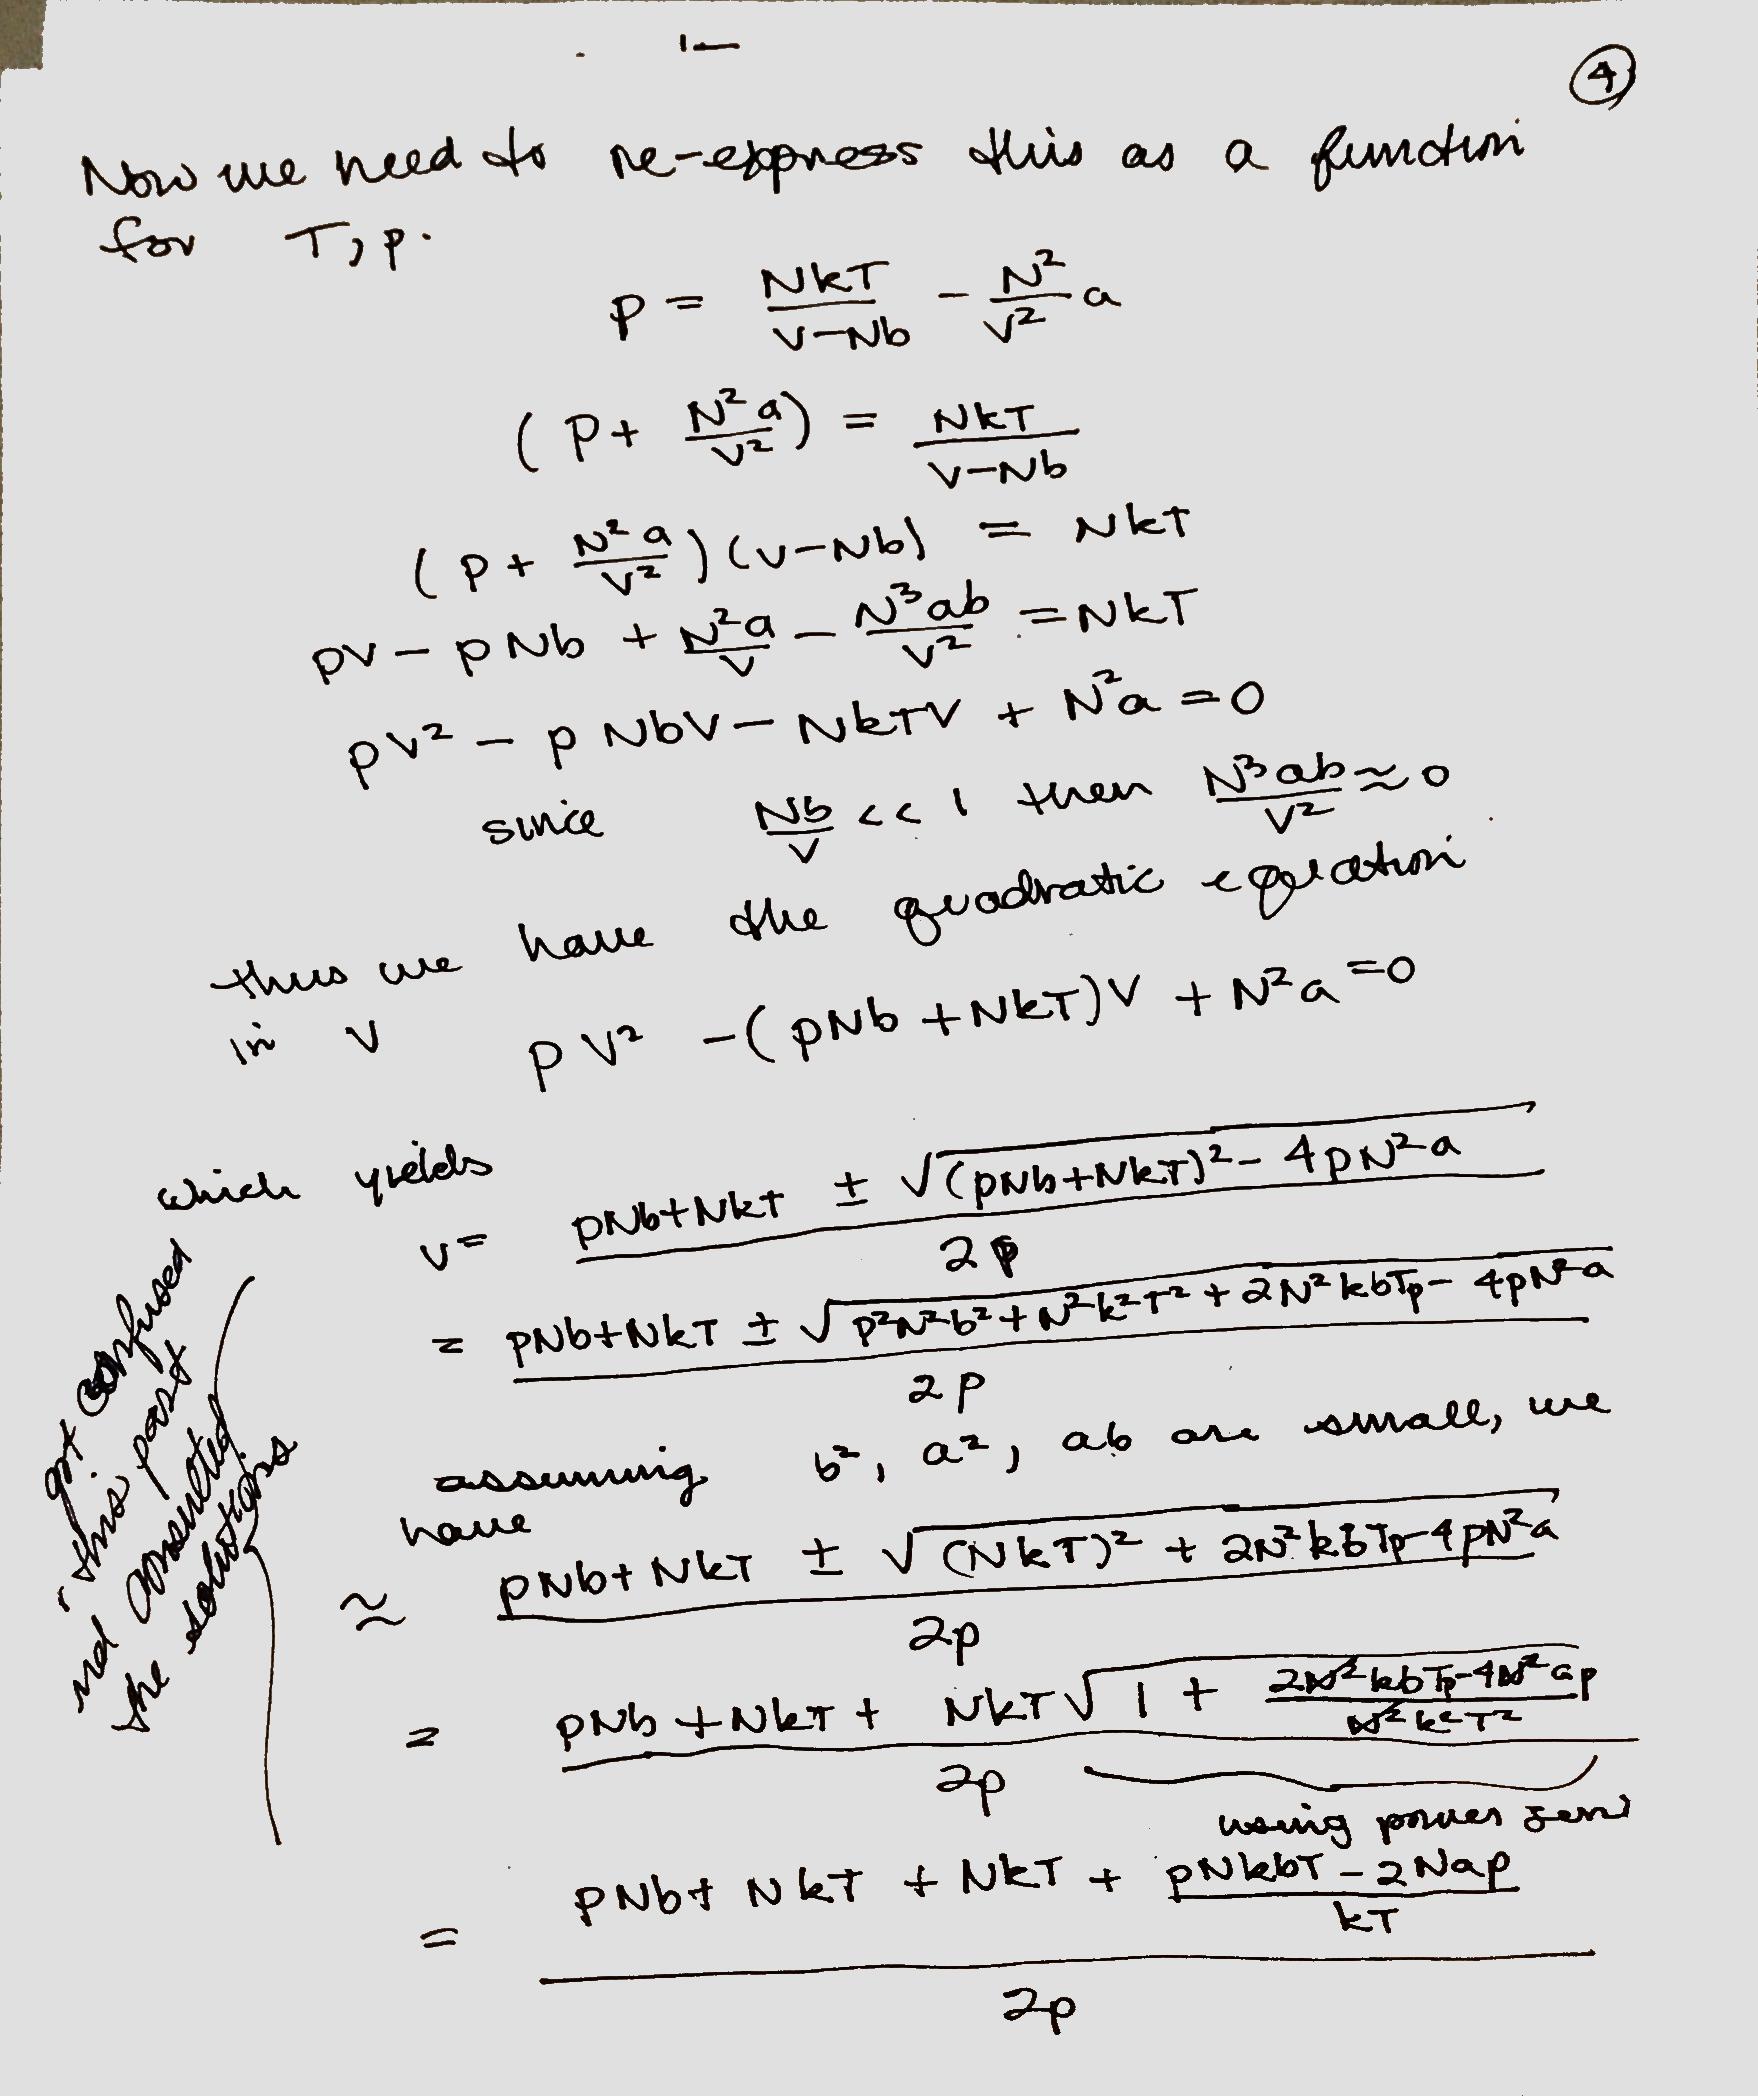 ④
Now we need to re-express this as a function
for T, p.
p = NkT/(V-Nb) - N²/V² a
(p + N²a/V²) = NkT/(V-Nb)
(p + N²a/V²)(V-Nb) = NkT
pV - pNb + N²a/V - N³ab/V² = NkT
pV² - pNbV - NkTV + N²a = 0
since Nb/V << 1 then N³ab/V² ≈ 0
thus we have the quadratic equation
in V pV² - (pNb + NkT)V + N²a = 0
which yields
V = (pNb+NkT ± √((pNb+NkT)² - 4pN²a))/2p
= (pNb+NkT ± √(p²N²b² + N²k²T² + 2N²kbTp - 4pN²a))/2p
assuming b², a², ab are small, we
have
≈ (pNb + NkT ± √((NkT)² + 2N²kbTp - 4pN²a))/2p
= (pNb + NkT + NkT√(1 + (2N²kbTp - 4N²ap)/(N²k²T²)))/2p
using power
= (pNb + NkT + NkT + (pNkbT - 2Nap)/kT)/2p
got confused
this part
nd consulted
the solutions